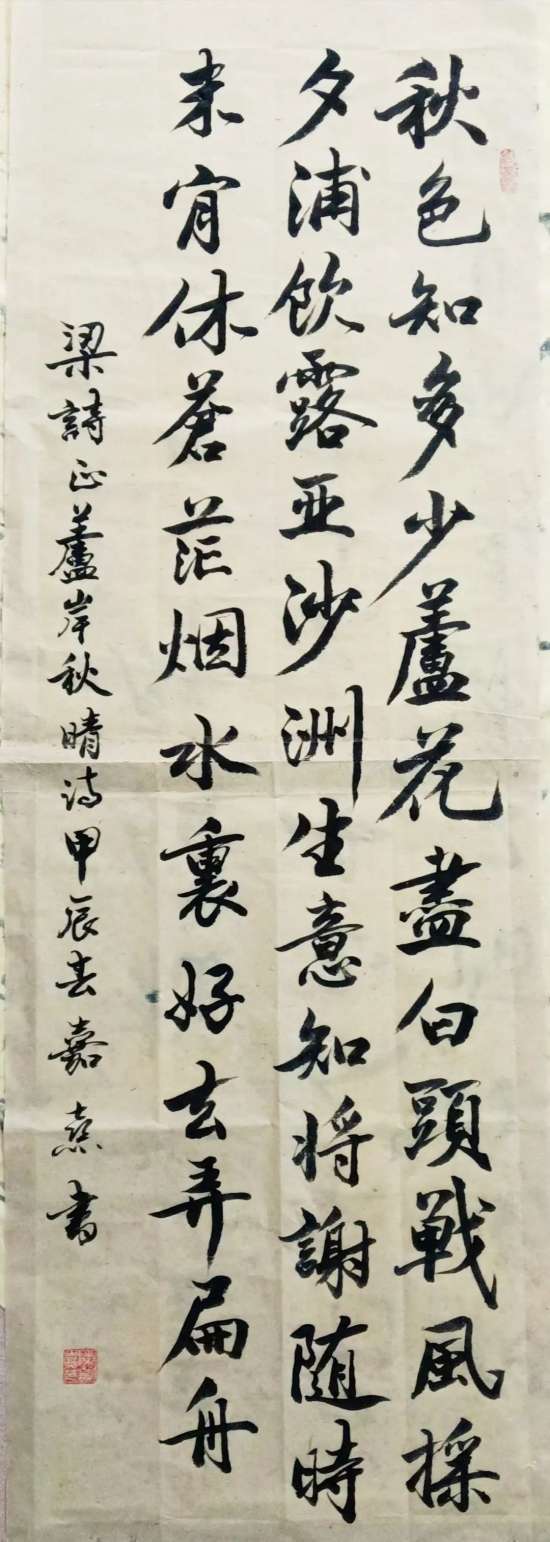 秋色知多少蘆花盡白頭戰風採
夕浦飲露亚沙洲生意知将謝随時
未肎休蒼茫烟水裏好去弄扁舟
梁詩正蘆岸秋晴诗甲辰春嘉熹書